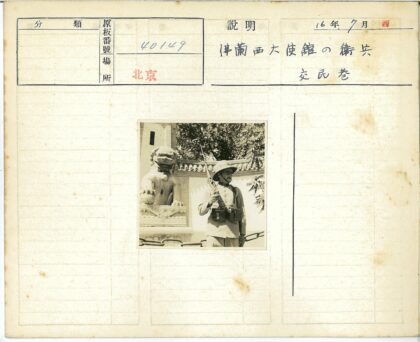 分類
原板番號 40149
場所 北京
説明 16年7月 西
佛蘭西大使館の衛兵
交民巷